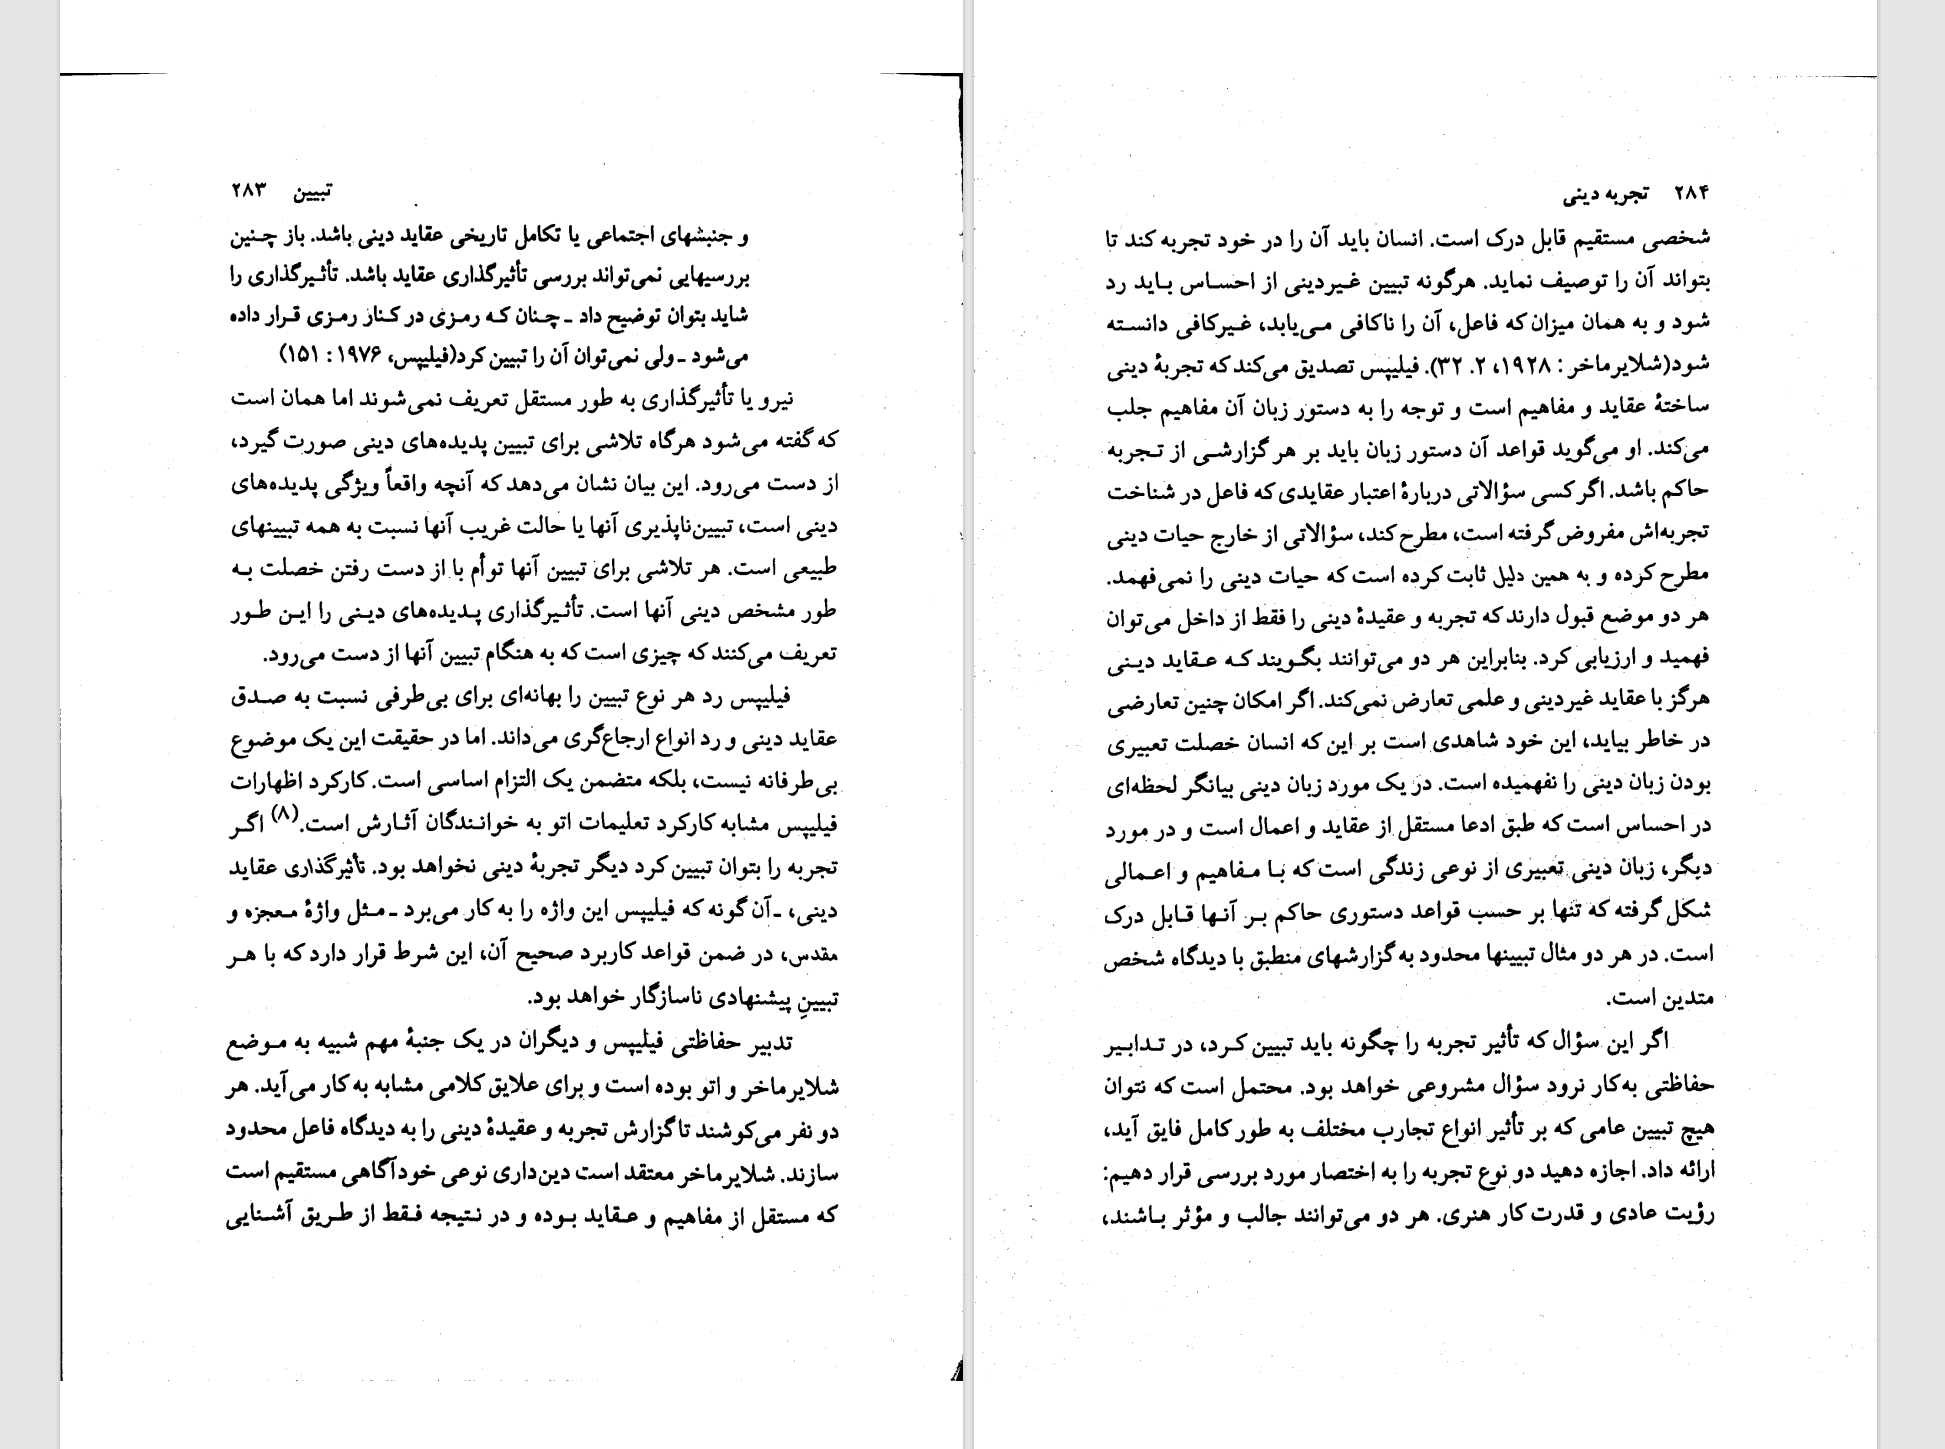 تبیین ۲۸۳
و جنبشهای اجتماعی یا تکامل تاریخی عقاید دینی باشد. باز چنین
بررسیهایی نمی‌تواند بررسی تأثیرگذاری عقاید باشد. تأثیرگذاری را
شاید بتوان توضیح داد ـ چنان که رمزی در کنار رمزی قرار داده
می‌شود ـ ولی نمی‌توان آن را تبیین کرد(فیلیپس، ۱۹۷۶ : ۱۵۱)
نیرو یا تأثیرگذاری به طور مستقل تعریف نمی‌شوند اما همان است
که گفته می‌شود هرگاه تلاشی برای تبیین پدیده‌های دینی صورت گیرد،
از دست می‌رود. این بیان نشان می‌دهد که آنچه واقعاً ویژگی پدیده‌های
دینی است، تبیین‌ناپذیری آنها یا حالت غریب آنها نسبت به همه تبیینهای
طبیعی است. هر تلاشی برای تبیین آنها توأم با از دست رفتن خصلت به
طور مشخص دینی آنها است. تأثیرگذاری پدیده‌های دینی را این طور
تعریف می‌کنند که چیزی است که به هنگام تبیین آنها از دست می‌رود.
فیلیپس رد هر نوع تبیین را بهانه‌ای برای بی‌طرفی نسبت به صدق
عقاید دینی و رد انواع ارجاع‌گری می‌داند. اما در حقیقت این یک موضوع
بی‌طرفانه نیست، بلکه متضمن یک التزام اساسی است. کارکرد اظهارات
فیلیپس مشابه کارکرد تعلیمات اتو به خوانندگان آثارش است.(۸) اگر
تجربه را بتوان تبیین کرد دیگر تجربهٔ دینی نخواهد بود. تأثیرگذاری عقاید
دینی، ـ آن گونه که فیلیپس این واژه را به کار می‌برد ـ مثل واژهٔ معجزه و
مقدس، در ضمن قواعد کاربرد صحیح آن، این شرط قرار دارد که با هر
تبیینِ پیشنهادی ناسازگار خواهد بود.
تدبیر حفاظتی فیلیپس و دیگران در یک جنبهٔ مهم شبیه به موضع
شلایرماخر و اتو بوده است و برای علایق کلامی مشابه به کار می‌آید. هر
دو نفر می‌کوشند تا گزارش تجربه و عقیدهٔ دینی را به دیدگاه فاعل محدود
سازند. شلایرماخر معتقد است دین‌داری نوعی خودآگاهی مستقیم است
که مستقل از مفاهیم و عقاید بوده و در نتیجه فقط از طریق آشنایی
۲۸۴ تجربه دینی
شخصی مستقیم قابل درک است. انسان باید آن را در خود تجربه کند تا
بتواند آن را توصیف نماید. هرگونه تبیین غیردینی از احساس باید رد
شود و به همان میزان که فاعل، آن را ناکافی می‌یابد، غیرکافی دانسته
شود(شلایرماخر : ۱۹۲۸، ۲. ۳۲). فیلیپس تصدیق می‌کند که تجربهٔ دینی
ساختهٔ عقاید و مفاهیم است و توجه را به دستور زبان آن مفاهیم جلب
می‌کند. او می‌گوید قواعد آن دستور زبان باید بر هر گزارشی از تجربه
حاکم باشد. اگر کسی سؤالاتی دربارهٔ اعتبار عقایدی که فاعل در شناخت
تجربه‌اش مفروض گرفته است، مطرح کند، سؤالاتی از خارج حیات دینی
مطرح کرده و به همین دلیل ثابت کرده است که حیات دینی را نمی‌فهمد.
هر دو موضع قبول دارند که تجربه و عقیدهٔ دینی را فقط از داخل می‌توان
فهمید و ارزیابی کرد. بنابراین هر دو می‌توانند بگویند که عقاید دینی
هرگز با عقاید غیردینی و علمی تعارض نمی‌کند. اگر امکان چنین تعارضی
در خاطر بیاید، این خود شاهدی است بر این که انسان خصلت تعبیری
بودن زبان دینی را نفهمیده است. در یک مورد زبان دینی بیانگر لحظه‌ای
در احساس است که طبق ادعا مستقل از عقاید و اعمال است و در مورد
دیگر، زبان دینی تعبیری از نوعی زندگی است که با مفاهیم و اعمالی
شکل گرفته که تنها بر حسب قواعد دستوری حاکم بر آنها قابل درک
است. در هر دو مثال تبیینها محدود به گزارشهای منطبق با دیدگاه شخص
متدین است.
اگر این سؤال که تأثیر تجربه را چگونه باید تبیین کرد، در تدابیر
حفاظتی به‌کار نرود سؤال مشروعی خواهد بود. محتمل است که نتوان
هیچ تبیین عامی که بر تأثیر انواع تجارب مختلف به طور کامل فایق آید،
ارائه داد. اجازه دهید دو نوع تجربه را به اختصار مورد بررسی قرار دهیم:
رؤیت عادی و قدرت کار هنری. هر دو می‌توانند جالب و مؤثر باشند،